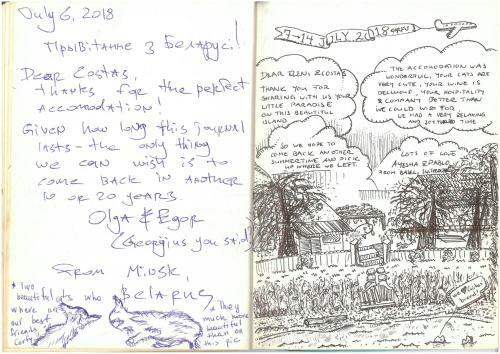 July 6, 2018
Прывiтанне з Беларусi!
Dear Costas,
thanks for the perfect
accomodation.
Given how long this journal
lasts - the only thing
we can wish is to
come back in another
10 or 20 years.
Olga & Egor
(Georgius you said)
From Minsk,
BELARUS
* Two
beautiful cats who
where are
our best
friends
* They
much more
beautiful
than on
this pic
7-14 JULY 2018
DEAR ELENI & COSTAS
THANK YOU FOR
SHARING WITH US YOUR
LITTLE PARADISE
ON THIS BEAUTIFUL
ISLAND
THE ACCOMODATION WAS
WONDERFUL, YOUR CATS ARE
VERY CUTE, YOUR WINE IS
DELICIOUS, YOUR HOSPITALITY
& COMPANY BETTER THAN
WE COULD WISH FOR
WE HAD A VERY RELAXING
AND TIME
SO WE HOPE TO
COME BACK ANOTHER
SUMMERTIME AND PICK
UP WHERE WE LEFT.
LOTS OF LOVE
& PABLO
FROM BASEL,